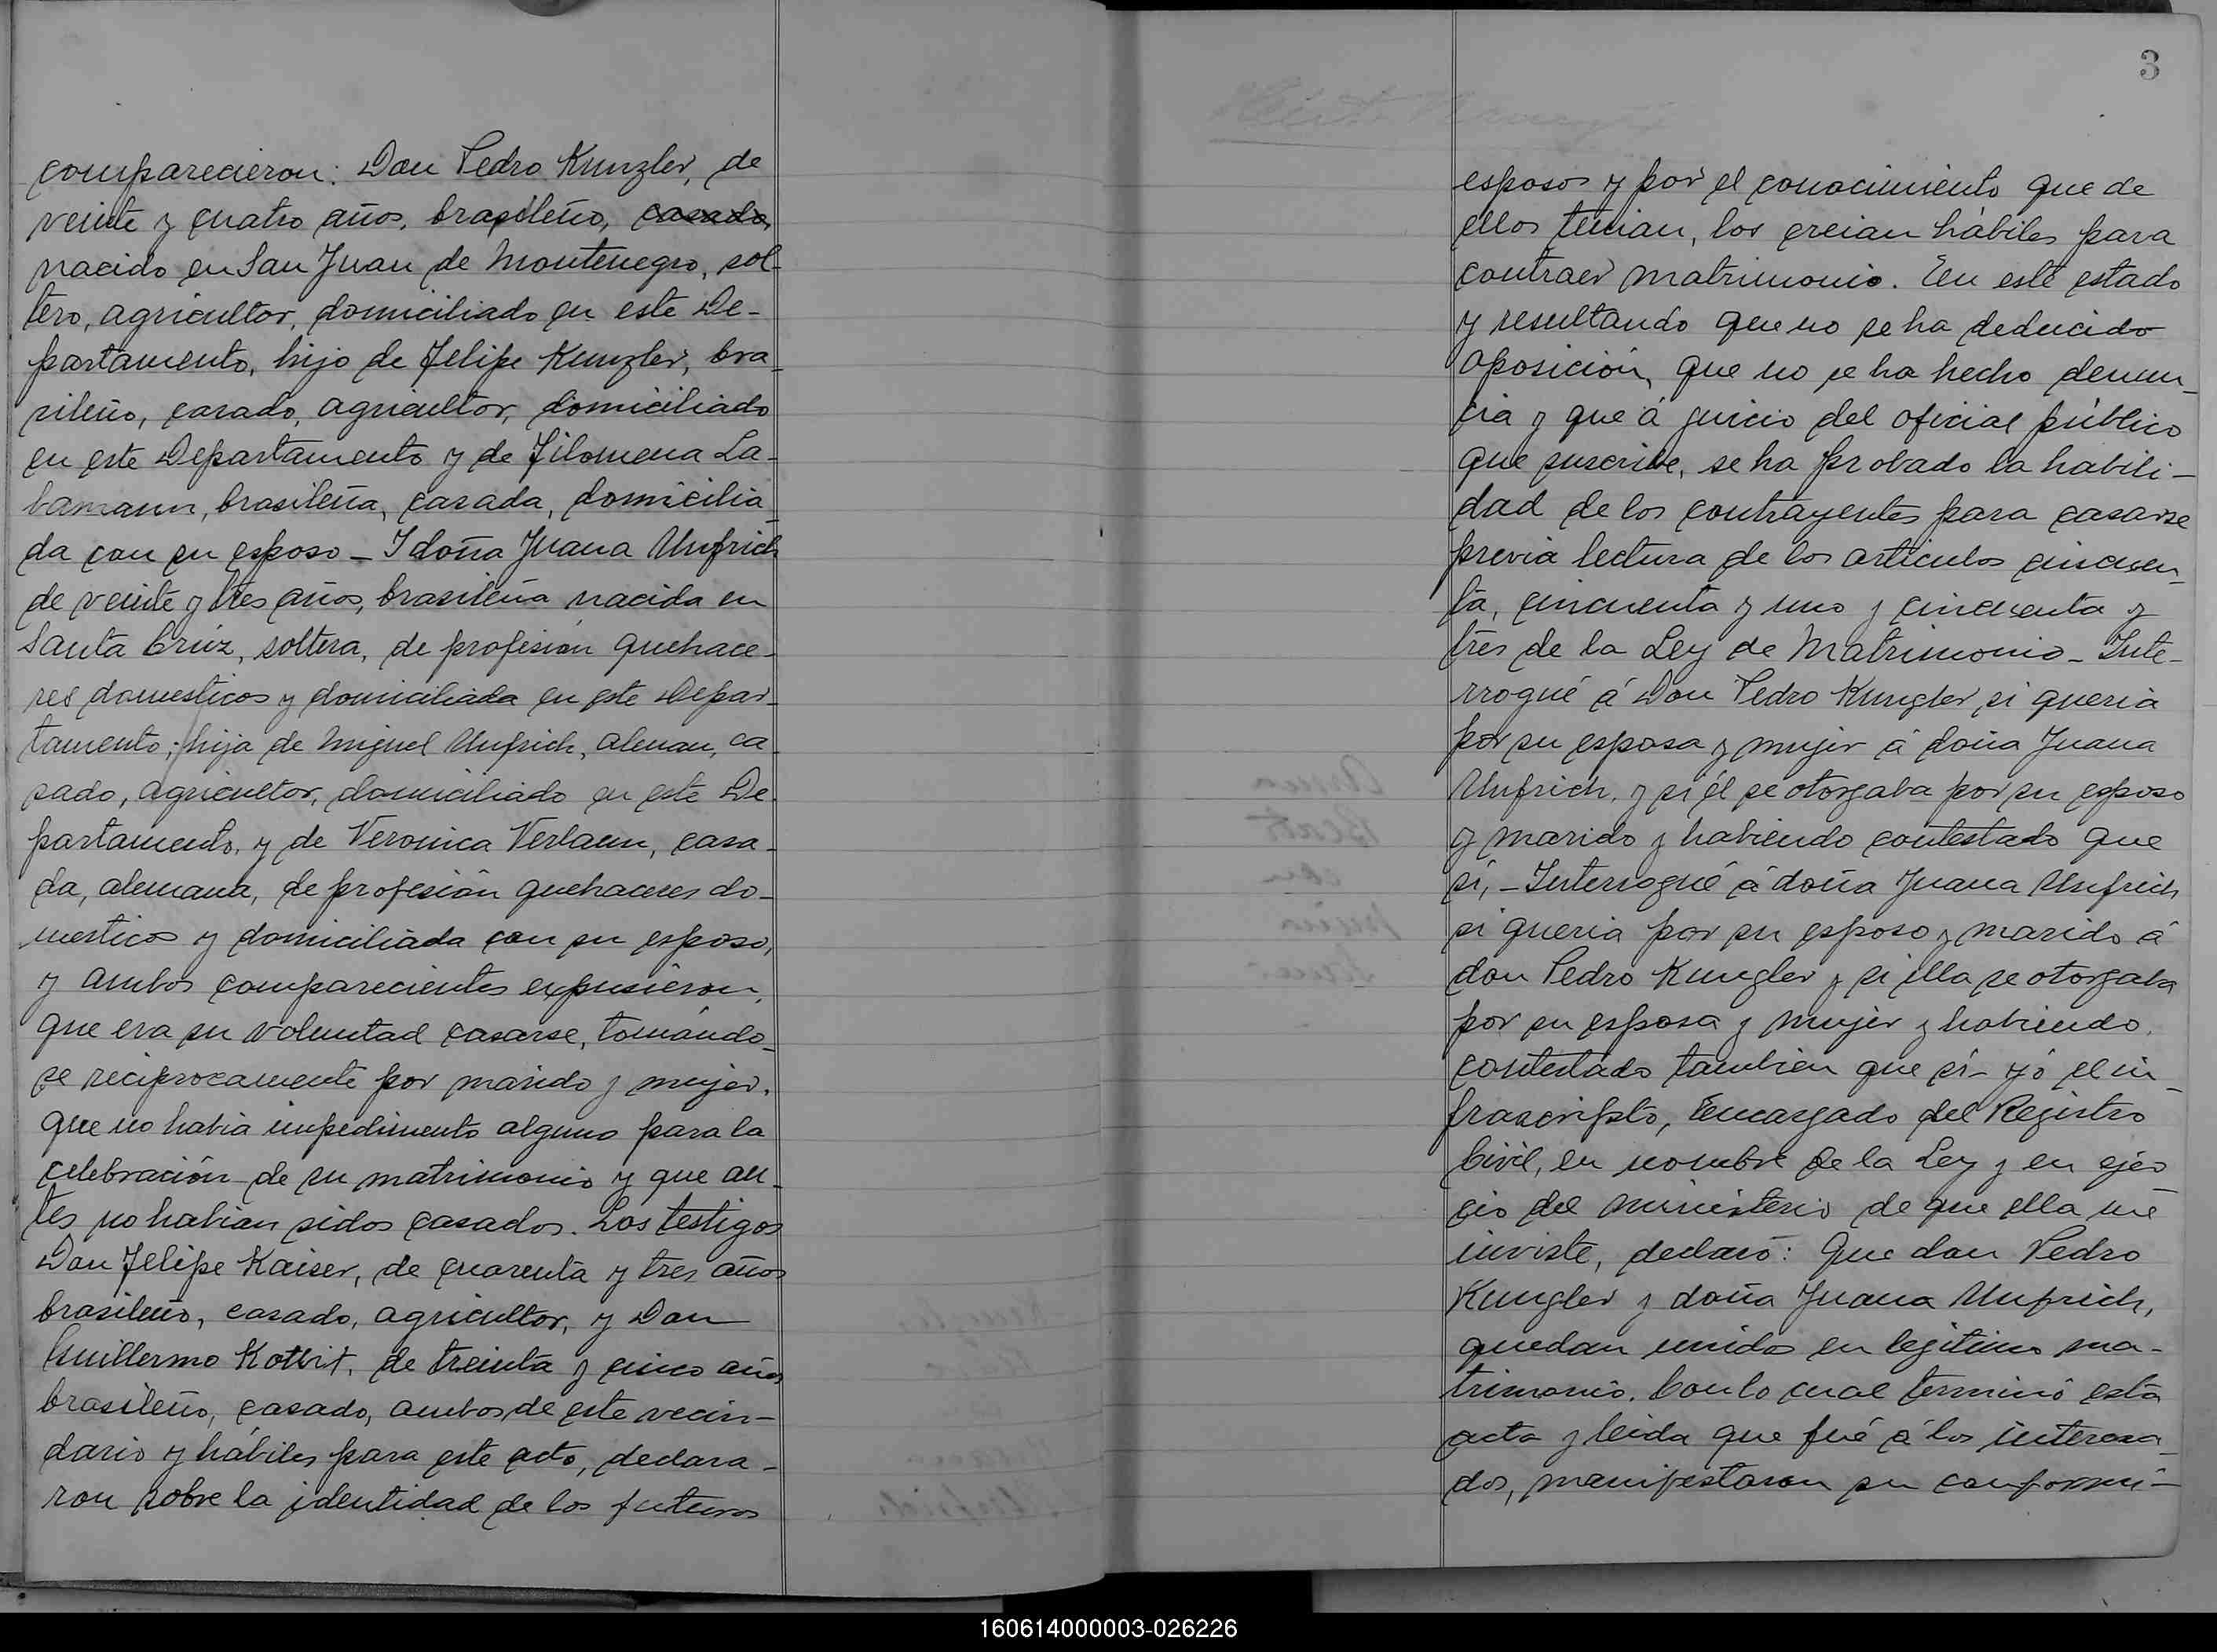 comparecieron: Don Pedro Kunzler, de
veinte y cuatro años, brasileño, casado,
nacido en San Juan de Montenegro, sol-
tero, agricultor, domiciliado en este De-
partamento, hijo de Felipe Kunzler, bra-
sileño, casado, agricultor, domiciliado
en este Departamento y de Filomena La-
bamann, brasileña, casada, domicilia-
da con su esposo - I doña Juana Unfrich
de veinte y tres años, brasileña nacida en
Santa Crúz, soltera, de profesión quehace-
res domesticos y domiciliada en este Depar-
tamento; hija de Miguel Unfrich, aleman, ca-
sado, agricultor, domiciliado en este De-
partamento, y de Veronica Verlaun, casa-
da, alemana, de profesión quehaceres do-
mesticos y domiciliada con su esposo,
y ambos comparecientes expusieron,
que era su voluntad casarse, tomándo-
se reciprocamente por marido y mujer.
que no habia impedimento alguno para la
celebración de su matrimonio y que an-
tes no habian sidos casados. Los testigos
Don Felipe Kaiser, de cuarenta y tres años
brasileño, casado, agricultor, y Don
Guillermo Kottvit, de treinta y cinco años
brasileño, casado, ambos de este vecin-
dario y hábiles para este acto, declara-
ron sobre la identidad de los futuros
3
esposos y por el conocimiento que de
ellos tenian, los creian hábiles para
contraer matrimonio. En este estado
y resultando que no se ha deducido
oposición, que no se ha hecho denun-
cia y que á juicio del oficial público
que suscribe, se ha probado la habili-
dad de los contrayentes para casarse
previa lectura de los articulos cincuen-
ta, cincuenta y uno y cincuenta y
tres de la Ley de Matrimonio - Inte-
rrogué á Don Pedro Kungler si queria
por su esposa y mujer á doña Juana
Unfrich, y si él se otorgaba por su esposo
y marido y habiendo contestado que
si, - Interrogué á doña Juana Unfrich
si queria por su esposo y marido á
don Pedro Kungler y si ella se otorgaba
por su esposa y mujer y habiendo
contestado tambien que si - yó el in-
frascripto, Encargado del Registro
Civil, en nombre de la Ley y en ejer
cio del ministerio de que ella me
inviste, declaró: Que don Pedro
Kungler y doña Juana Unfrich,
quedan unidos en legitimo ma-
trimonio. Con lo cual terminó esta
acta y leida que fué á los interesa-
dos, manifestaron su conformi-
160614000003-026226